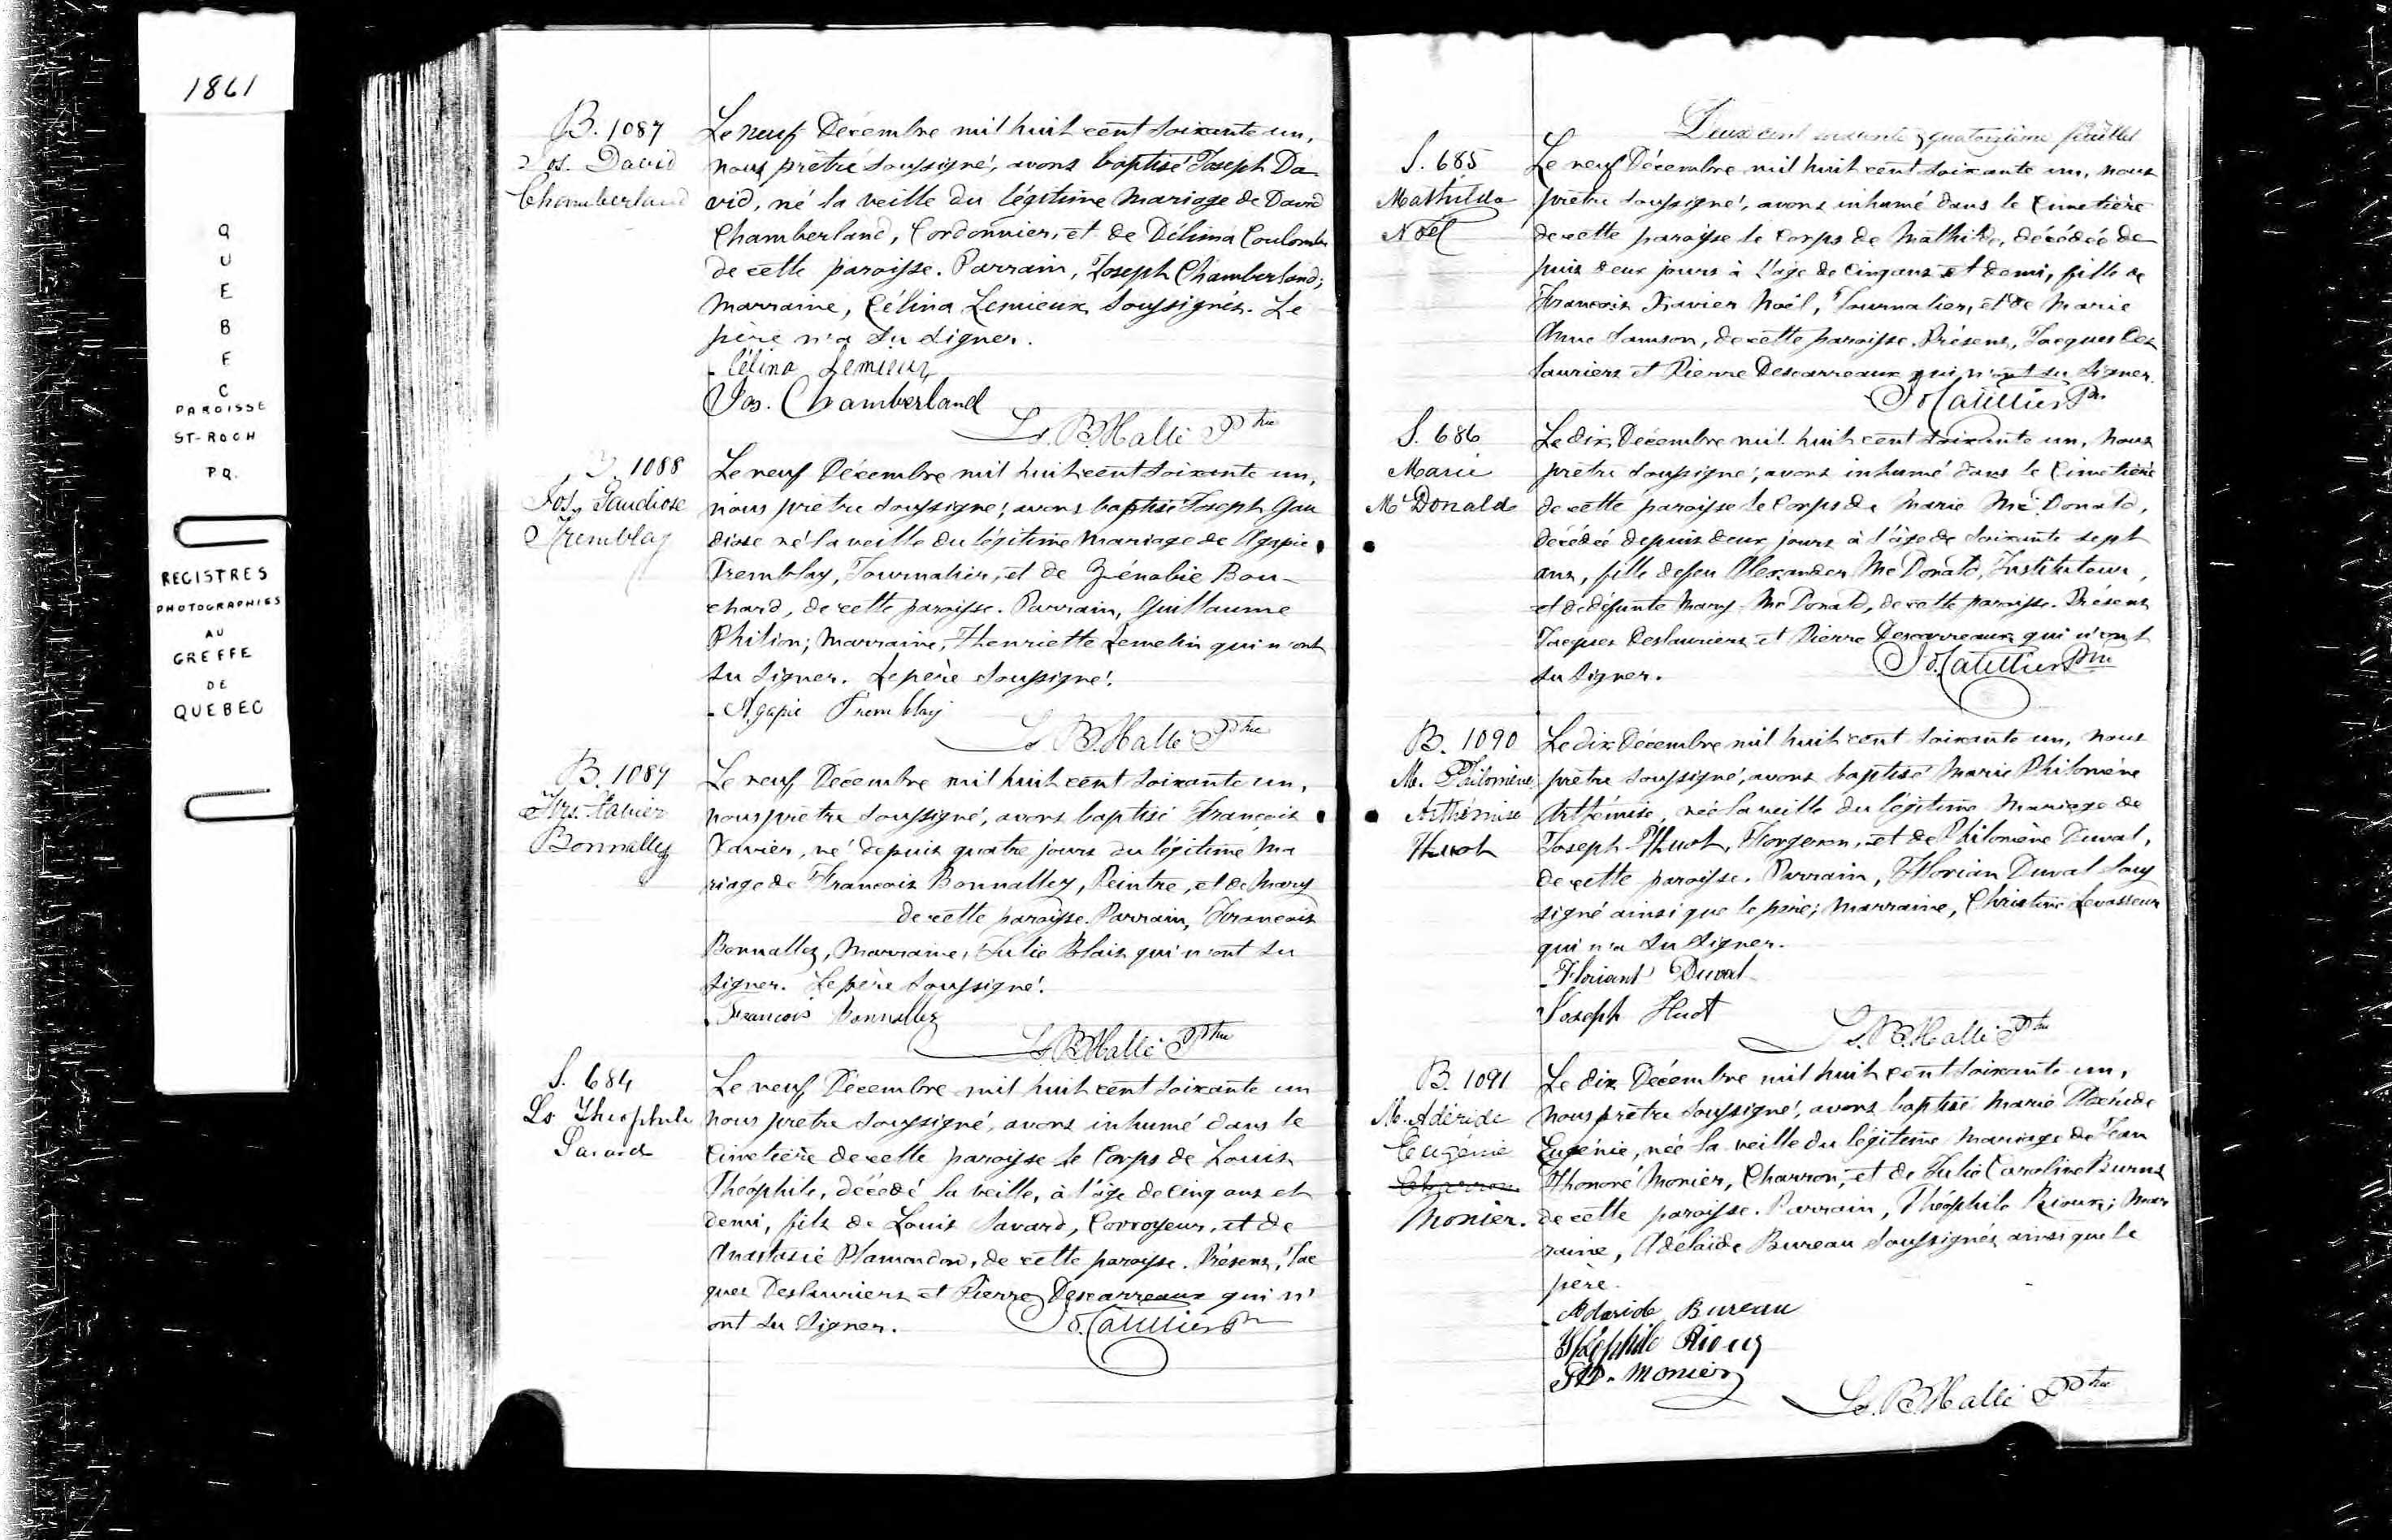 1861
QUEBEC
PAROISSE
ST-ROCH
P.Q.
REGISTRES
PHOTOGRAPHIES
AU
GREFFE
DE
QUEBEC
B. 1087
Jos. David
Chamberland
Le neuf Décembre mil huit cent soixante un,
nous prêtre soussigné, avons baptisé Joseph Da-
vid, né la veille du légitime mariage de David
Chamberland, Cordonnier, et de Délima Coulombe
de cette paroisse. Parrain, Joseph Chamberland;
Marraine, Célina Lemieux, soussignés. Le
père n'a su signer.
Célina Lemieux
Jos. Chamberland
Ls. B. Hallé Ptre
B. 1088
Jos. Gaudiose
Tremblay
Le neuf Décembre mil huit cent soixante un,
nous prêtre soussigné, avons baptisé Joseph Gau
diose né la veille du légitime mariage de Agapie
Tremblay, Journalier, et de Zénobie Bou-
chard, de cette paroisse. Parrain, Guillaume
Philion; Marraine, Henriette Lemelin qui n'ont
su signer. Le père soussigné.
Agapie Tremblay
Ls B. Hallé Ptre
B. 1089
Frs. Xavier
Bonnalley
Le neuf Décembre mil huit cent soixante un,
nous prêtre soussigné, avons baptisé François
Xavier, né depuis quatre jours du légitime ma
riage de François Bonnalley, Peintre, et de Mary
de cette paroisse. Parrain, François
Bonnalley, Marraine, Julie Blais qui n'ont su
signer. Le père soussigné.
François Bonnalley
Ls B. Hallé Ptre
S. 684
Ls Théophile
Savard
Le neuf Décembre mil huit cent soixante un
nous prêtre soussigné, avons inhumé dans le
Cimetière de cette paroisse le Corps de Louis
Théophile, décédé la veille, à l'âge de cinq ans et
demi, fils de Louis Savard, Corroyeur, et de
Anastasie Plamondon, de cette paroisse. Présens, Jac
ques Deslauriers et Pierre Descarreaux qui n'
ont su signer.
Deux cent quatorzième feuillet
S. 685
Mathilde
Noël
Le neuf Décembre mil huit cent soixante un, nous
prêtre soussigné, avons inhumé dans le Cimetière
de cette paroisse le Corps de Mathilde, décédée de
puis deux jours à l'âge de cinq ans et demi, fille de
François Xavier Noël, Journalier, et de Marie
Anne Samson, de cette paroisse. Présens, Jacques Des
lauriers et Pierre Descarreaux qui n'ont su signer.
S. 686
Marie
McDonald
Le dix Décembre mil huit cent soixante un, nous
prêtre soussigné, avons inhumé dans le Cimetière
de cette paroisse le Corps de Marie McDonald,
décédée depuis deux jours à l'âge de soixante sept
ans, fille de feu Alexander McDonald, Instituteur,
et de défunte Mary McDonald, de cette paroisse. Présens
Jacques Deslauriers et Pierre Descarreaux qui n'ont
su signer.
B. 1090
M. Philomène
Arthémise
Huot
Le dix Décembre mil huit cent soixante un, nous
prêtre soussigné, avons baptisé Marie Philomène
Arthémise, née la veille du légitime mariage de
Joseph Huot, Forgeron, et de Philomène Duval,
de cette paroisse. Parrain, Florian Duval sous
signé ainsi que le père; Marraine, Christine Levasseur
qui n'a su signer.
Floriant Duval
Joseph Huot
Ls. B. Hallé Ptre
B. 1091
M. Adéride
Eugénie
Charron
Monier.
Le dix Décembre mil huit cent soixante un,
nous prêtre soussigné, avons baptisé Marie
Eugénie, née la veille du légitime mariage de Jean
Honoré Monier, Charron, et de Julie Caroline Burns
de cette paroisse. Parrain, Théophile Rioux; Mar
raine, Adélaïde Bureau soussignés ainsi que le
père.
Bureau
Théophile Rioux
Monier
Ls. B. Hallé Ptre